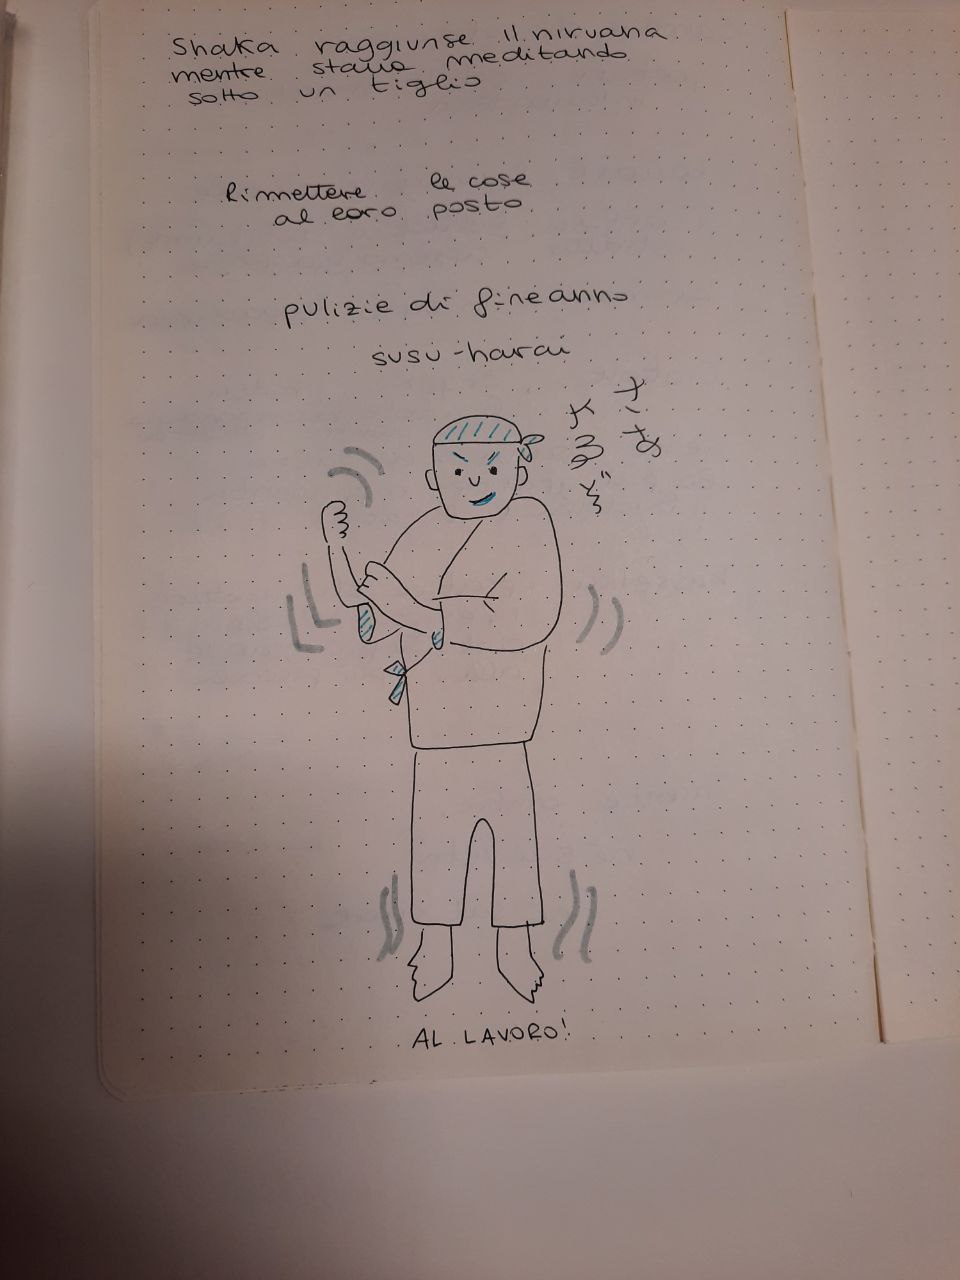 Shaka raggiunse il nirvana
mentre stava meditando
sotto un tiglio
Rimettere le cose
al loro posto
pulizie di fine anno
susu-harai
AL LAVORO!